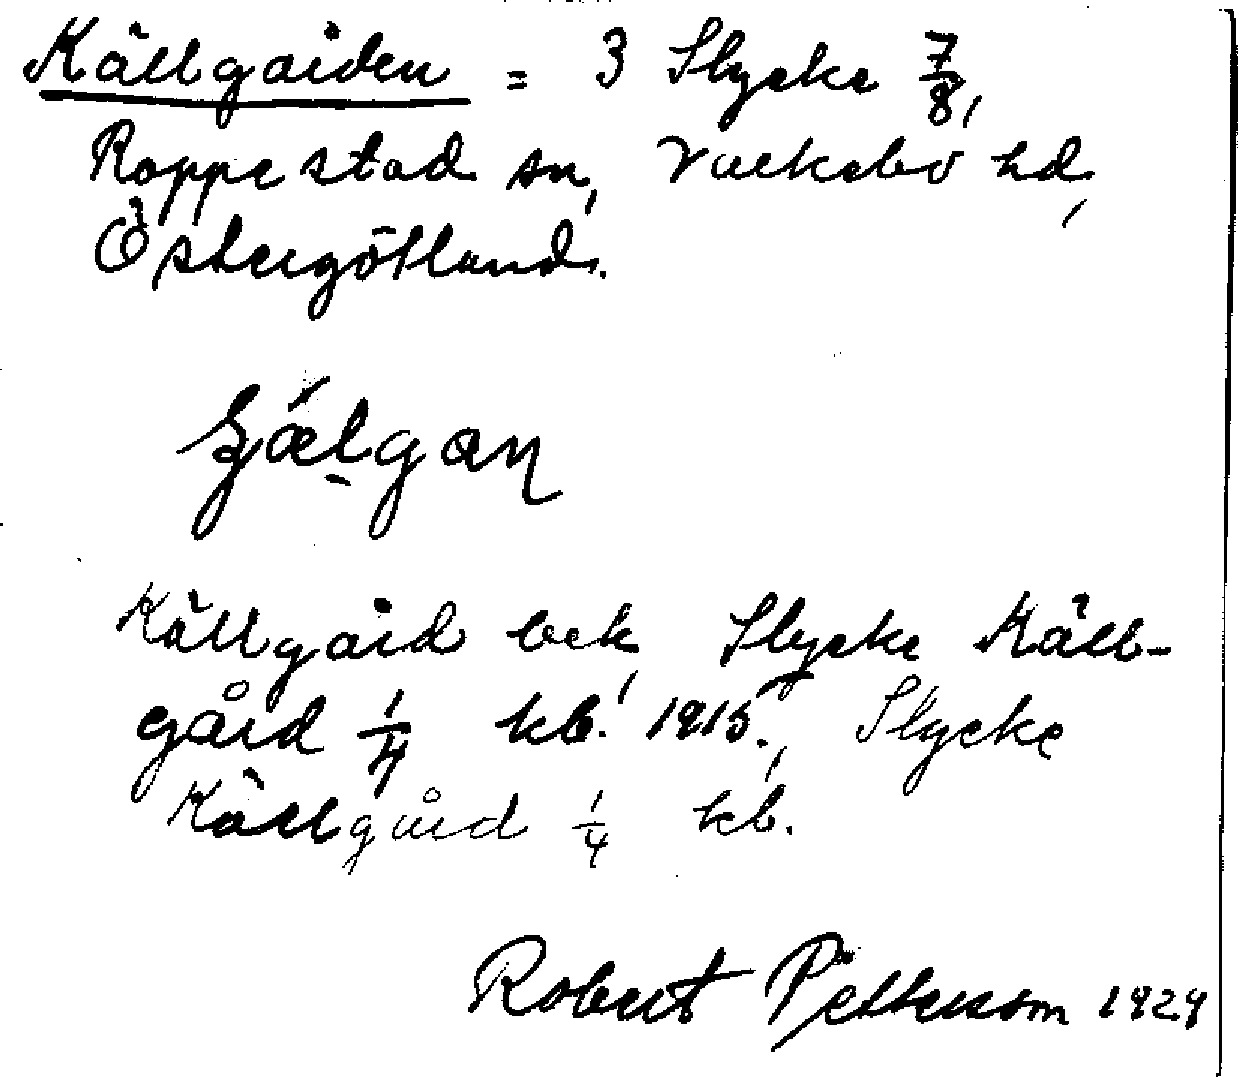 Källgården = 3 Slycke 7/8,
Rappestad sn, Valkebo hd,
Östergötland.
Källgård bek, Slycke Käll-
gård 1/4 kb. 1915., Slycke
Källgård 1/4 kb.
Robert Pettersson 1929